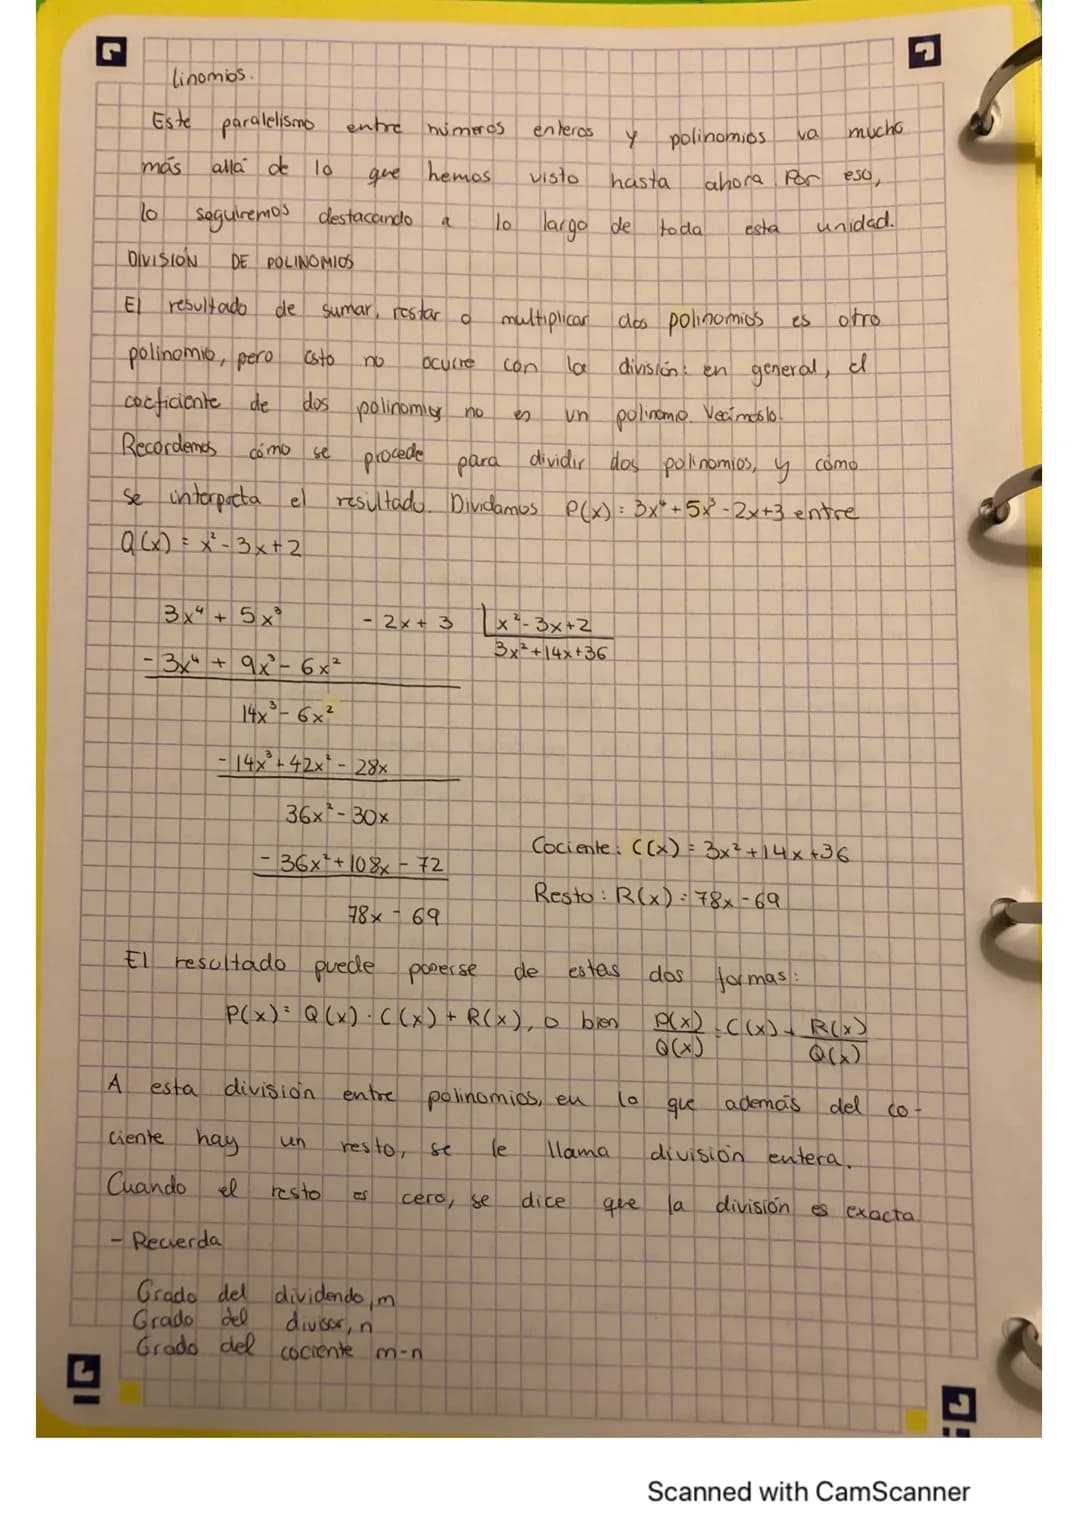 linomios.
Este paralelismo entre números enteros y polinomios va mucho
más allá de lo que hemos visto hasta ahora Por eso,
lo seguiremos destacando a lo largo de toda esta unidad.
DIVISIÓN DE POLINOMIOS
El resultado de sumar, restar o multiplicar dos polinomios es otro
polinomio, pero esto no ocurre con la división: en general, el
coeficiente de dos polinomios no es un polinomio. Veámoslo.
Recordemos cómo se procede para dividir dos polinomios, y cómo
se interpreta el resultado. Dividamos P(x) = 3x⁴ + 5x³ - 2x + 3 entre
Q(x) = x² - 3x + 2
3x⁴ + 5x³ - 2x + 3 | x² - 3x + 2
- 3x⁴ + 9x³ - 6x² 3x² + 14x + 36
14x³ - 6x²
- 14x³ + 42x² - 28x
36x² - 30x
- 36x² + 108x - 72
78x - 69
Cociente: C(x) = 3x² + 14x + 36
Resto: R(x) = 78x - 69
El resultado puede ponerse de estas dos formas:
P(x) = Q(x) · C(x) + R(x), o bien P(x)/Q(x) = C(x) + R(x)/Q(x)
A esta división entre polinomios, en la que además del co-
ciente hay un resto, se le llama división entera.
Cuando el resto es cero, se dice que la división es exacta.
- Recuerda
Grado del dividendo, m
Grado del divisor, n
Grado del cociente m-n
Scanned with CamScanner